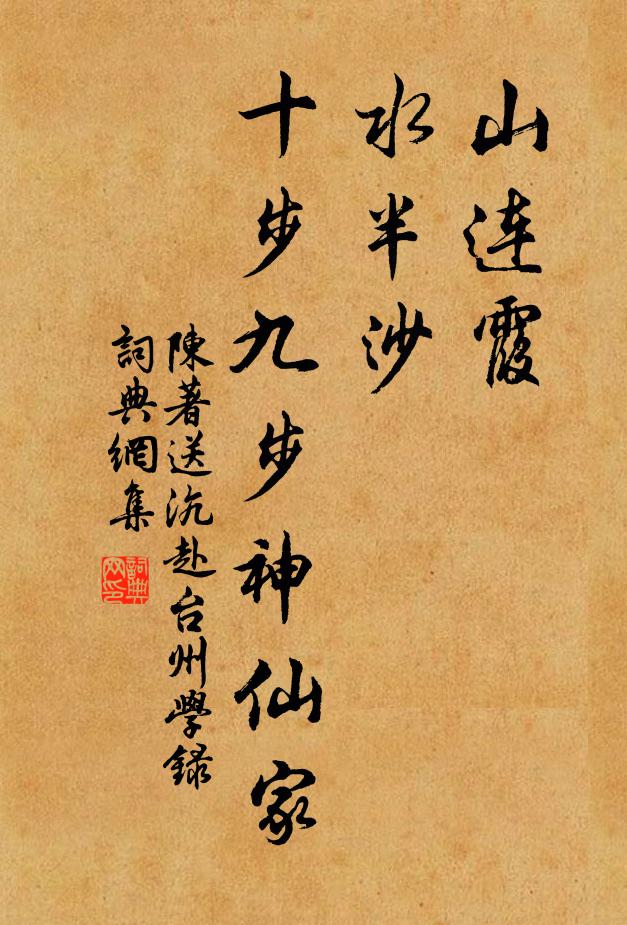 山連霞
水半沙
十步九步神仙家
陳著送沆赴台州學錄
詞典網集
詞典
网印